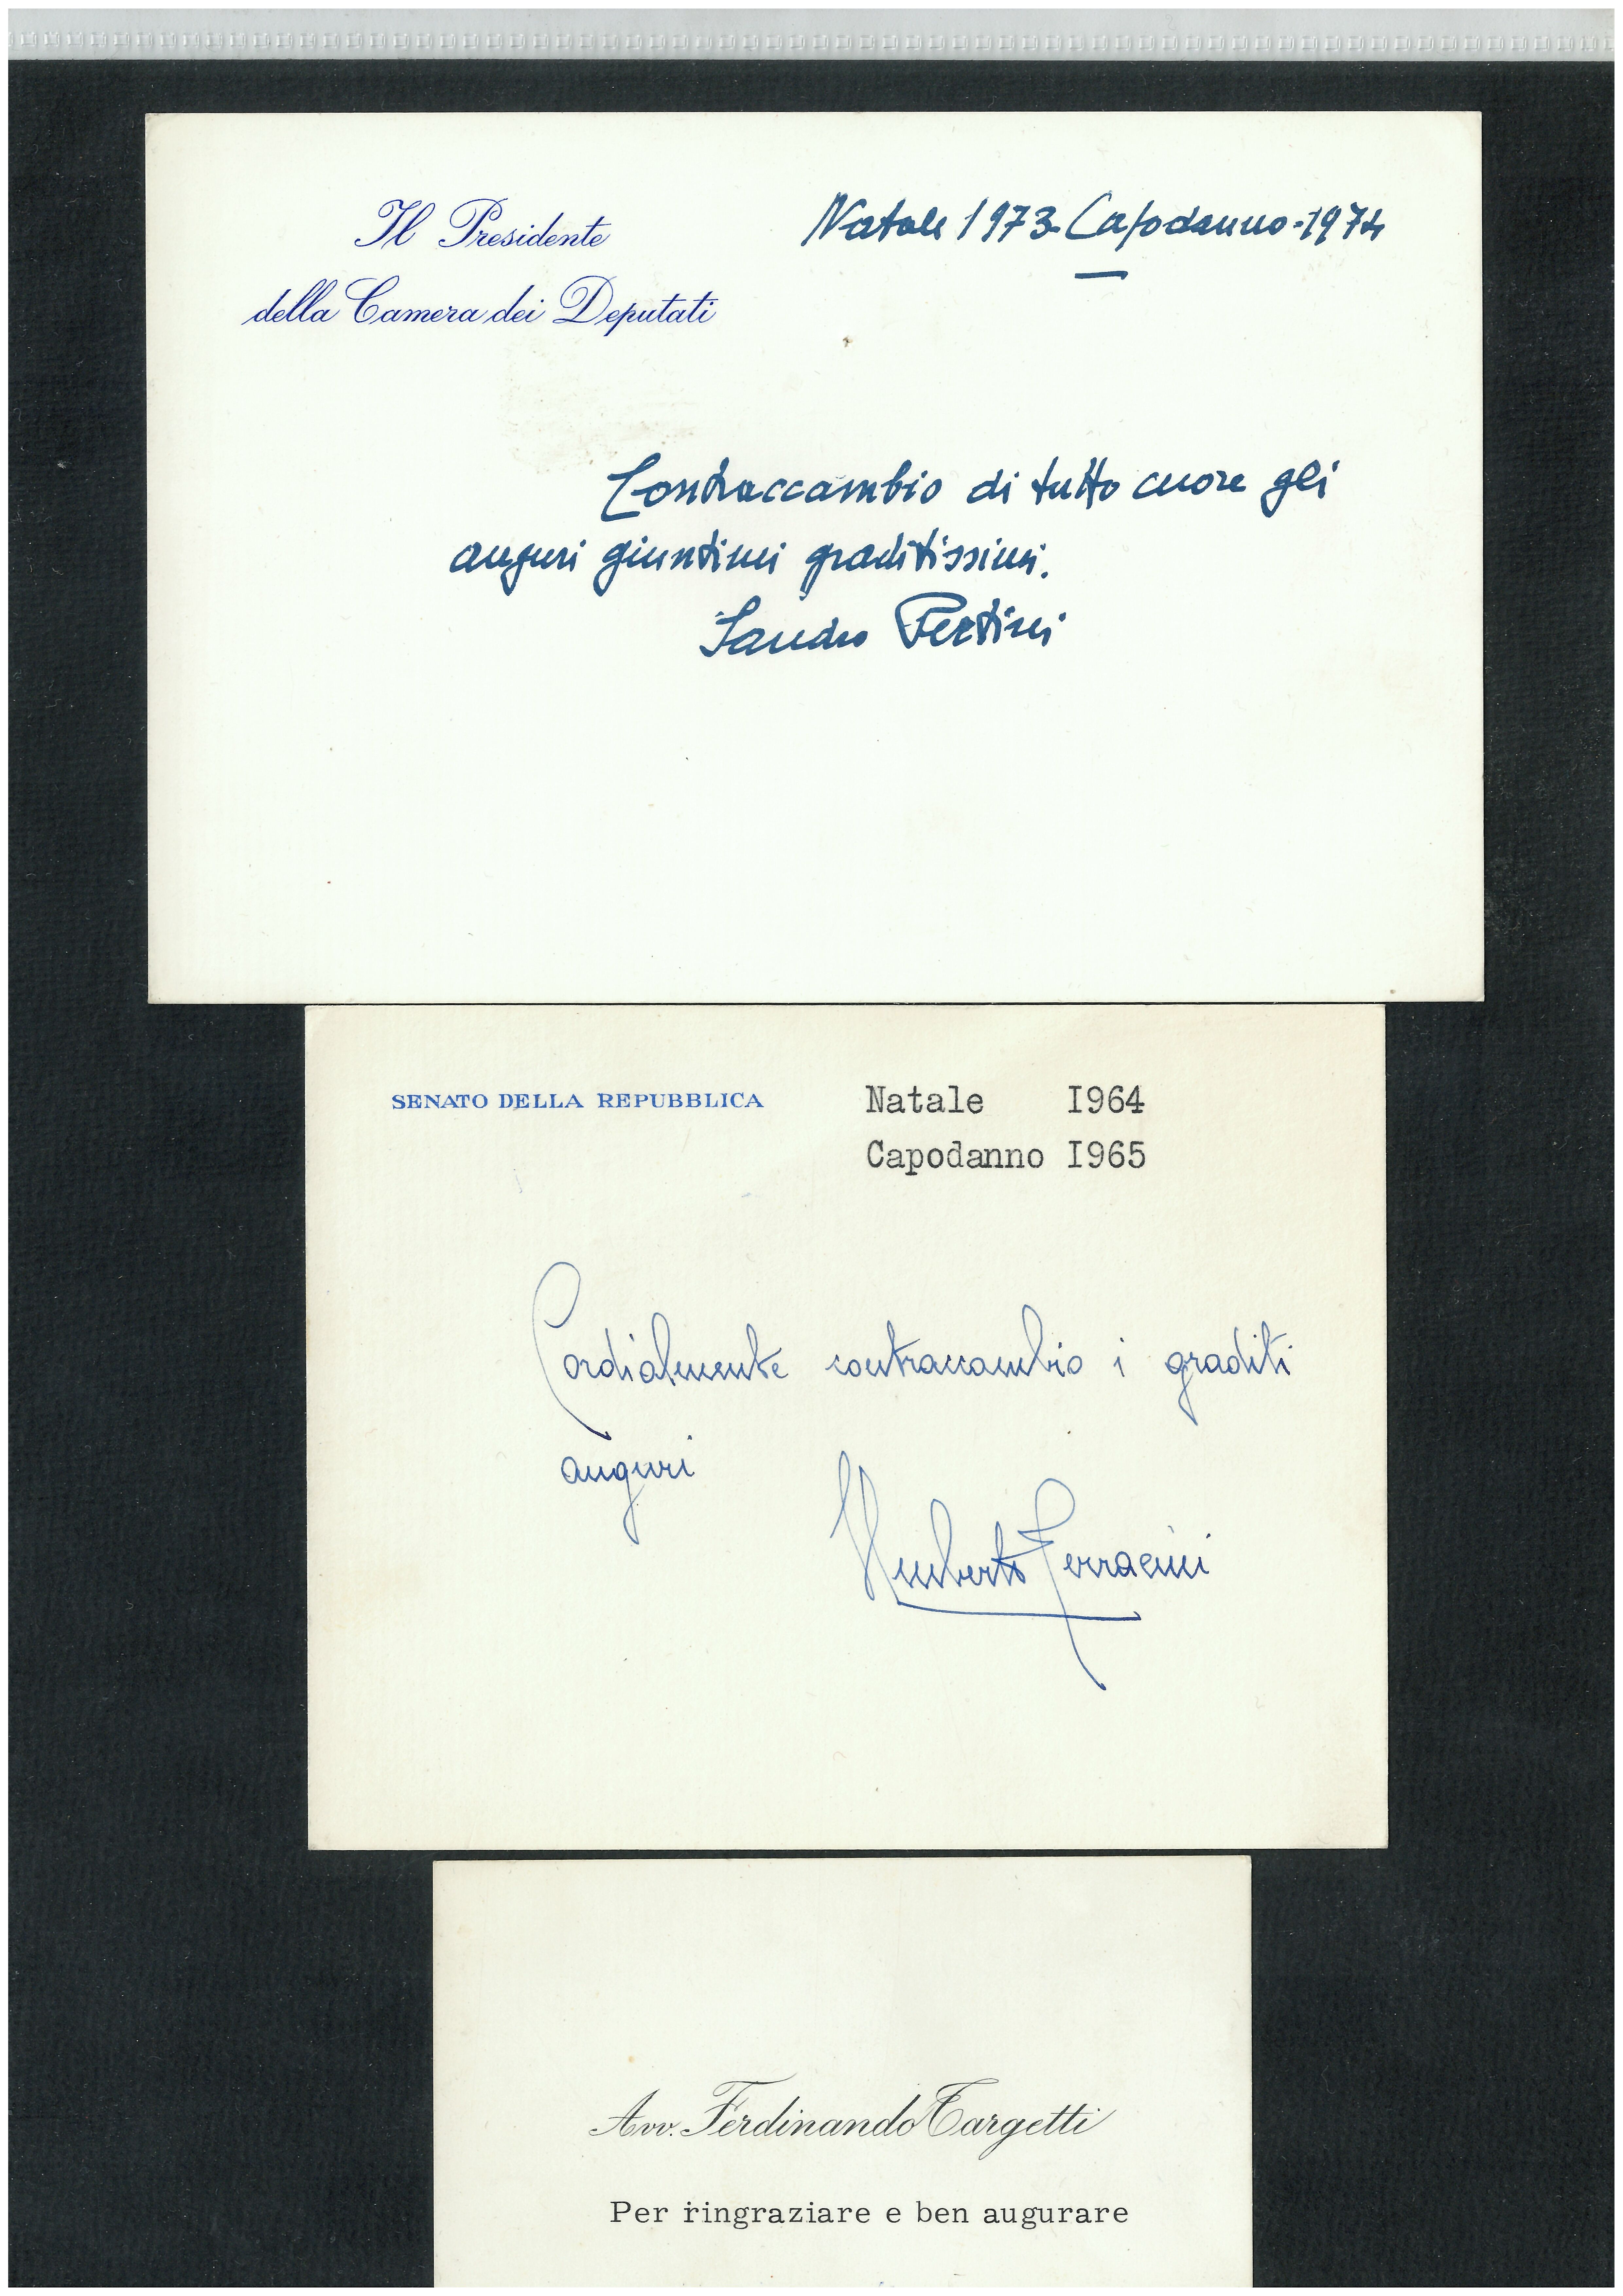 Il Presidente
della Camera dei Deputati
Natale 1973-Capodanno-1974
Contraccambio di tutto cuore gli
auguri giuntimi graditissimi.
Sandro Pertini
SENATO DELLA REPUBBLICA
Natale I964
Capodanno I965
Cordialmente contraccambio i graditi
auguri
Umberto Terracini
Avv. Ferdinando Targetti
Per ringraziare e ben augurare